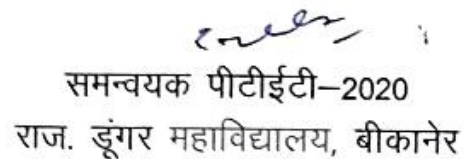 समन्वयक पीटीईटी–2020
राज. डूंगर महाविद्यालय, बीकानेर